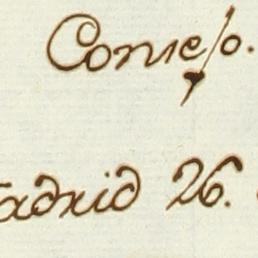 Consejo.
Madrid 26.